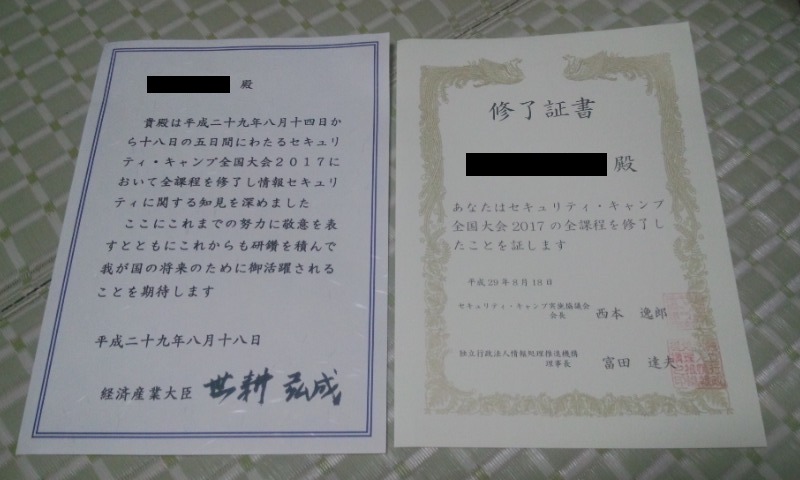 殿
貴殿は平成二十九年八月十四日か
ら十八日の五日間にわたるセキュリ
ティ・キャンプ全国大会2017に
おいて全課程を修了し情報セキュリ
ティに関する知見を深めました
ここにこれまでの努力に敬意を表
すとともにこれからも研鑽を積んで
我が国の将来のために御活躍される
ことを期待します
平成二十九年八月十八日
経済産業大臣 世耕 弘成
修了証書
殿
あなたはセキュリティ・キャンプ
全国大会2017の全課程を修了し
たことを証します
平成29年8月18日
セキュリティ・キャンプ実施協議会
会長 西本 逸郎
独立行政法人情報処理推進機構
理事長 富田 達夫